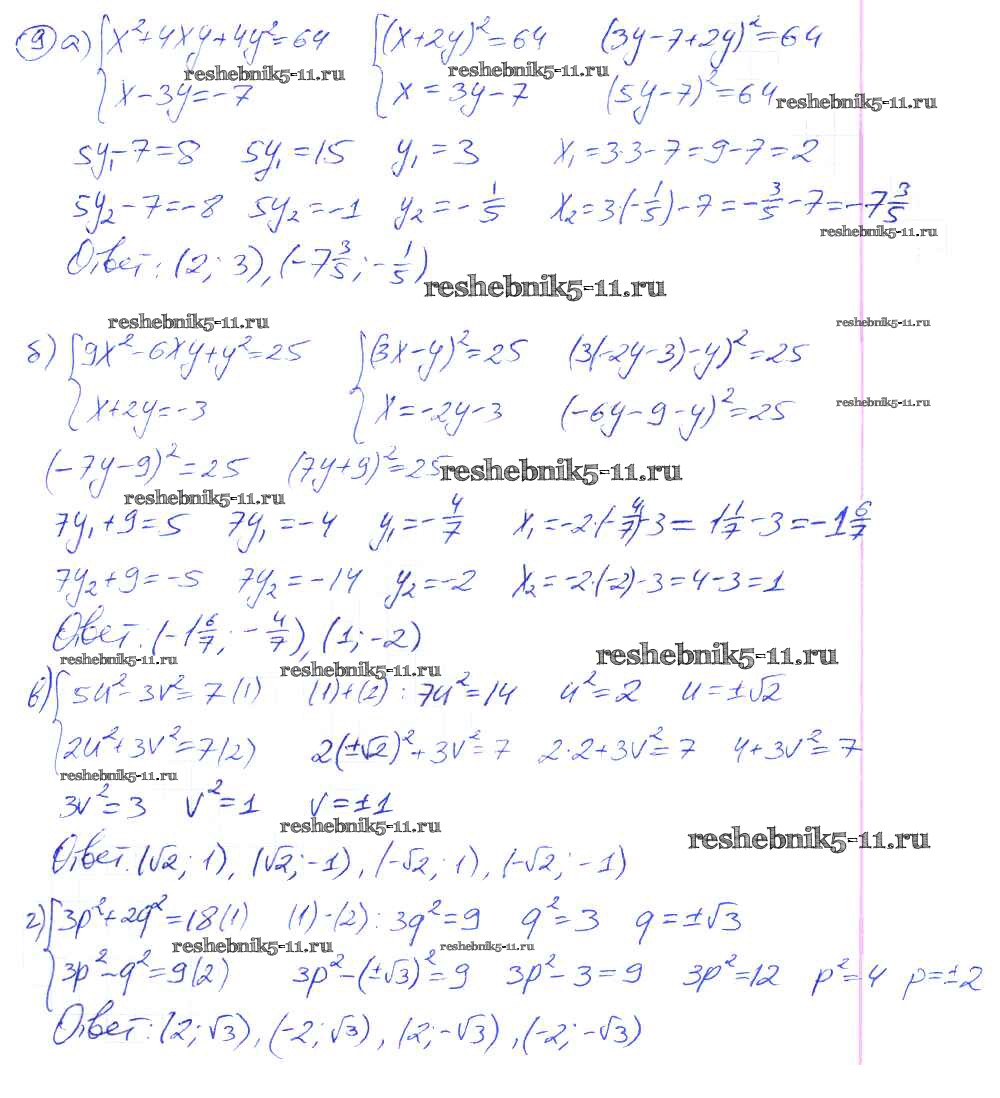 9 а) { x²+4xy+4y²=64 { (x+2y)²=64 (3y-7+2y)²=64
reshebnik5-11.ru reshebnik5-11.ru
x-3y=-7 x=3y-7 (5y-7)²=64 reshebnik5-11.ru
5y₁-7=8 5y₁=15 y₁=3 x₁=3·3-7=9-7=2
5y₂-7=-8 5y₂=-1 y₂=-1/5 x₂=3(-1/5)-7=-3/5-7=-7 3/5
reshebnik5-11.ru
Ответ: (2; 3), (-7 3/5; -1/5) reshebnik5-11.ru
reshebnik5-11.ru reshebnik5-11.ru
б) { 9x²-6xy+y²=25 { (3x-y)²=25 (3(-2y-3)-y)²=25
x+2y=-3 x=-2y-3 (-6y-9-y)²=25 reshebnik5-11.ru
(-7y-9)²=25 (7y+9)²=25 reshebnik5-11.ru
reshebnik5-11.ru
7y₁+9=5 7y₁=-4 y₁=-4/7 x₁=-2·(-4/7)-3=1 1/7-3=-1 6/7
7y₂+9=-5 7y₂=-14 y₂=-2 x₂=-2·(-2)-3=4-3=1
Ответ: (-1 6/7; -4/7), (1; -2)
reshebnik5-11.ru reshebnik5-11.ru reshebnik5-11.ru
в) { 5u²-3v²=7 (1) (1)+(2): 7u²=14 u²=2 u=±√2
2u²+3v²=7 (2) 2(±√2)²+3v²=7 2·2+3v²=7 4+3v²=7
reshebnik5-11.ru
3v²=3 v²=1 v=±1
reshebnik5-11.ru reshebnik5-11.ru
Ответ: (√2; 1), (√2; -1), (-√2; 1), (-√2; -1)
г) { 3p²+2q²=18 (1) (1)-(2): 3q²=9 q²=3 q=±√3
reshebnik5-11.ru reshebnik5-11.ru
3p²-q²=9 (2) 3p²-(±√3)²=9 3p²-3=9 3p²=12 p²=4 p=±2
Ответ: (2; √3), (-2; √3), (2; -√3), (-2; -√3)